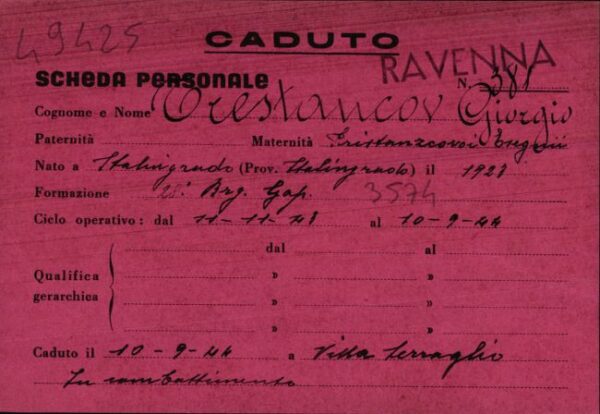 49425
CADUTO
RAVENNA
SCHEDA PERSONALE N. 381
Cognome e Nome Trestancov Giorgio
Paternità Maternità
Nato a Stalingrado (Prov. Stalingrado) il 1923
Formazione 28ª Brg. Gap. 3574
Ciclo operativo: dal 11-11-43 al 10-9-44
dal al
Qualifica gerarchica » »
» »
» »
Caduto il 10-9-44 a Villa Serraglio
In combattimento